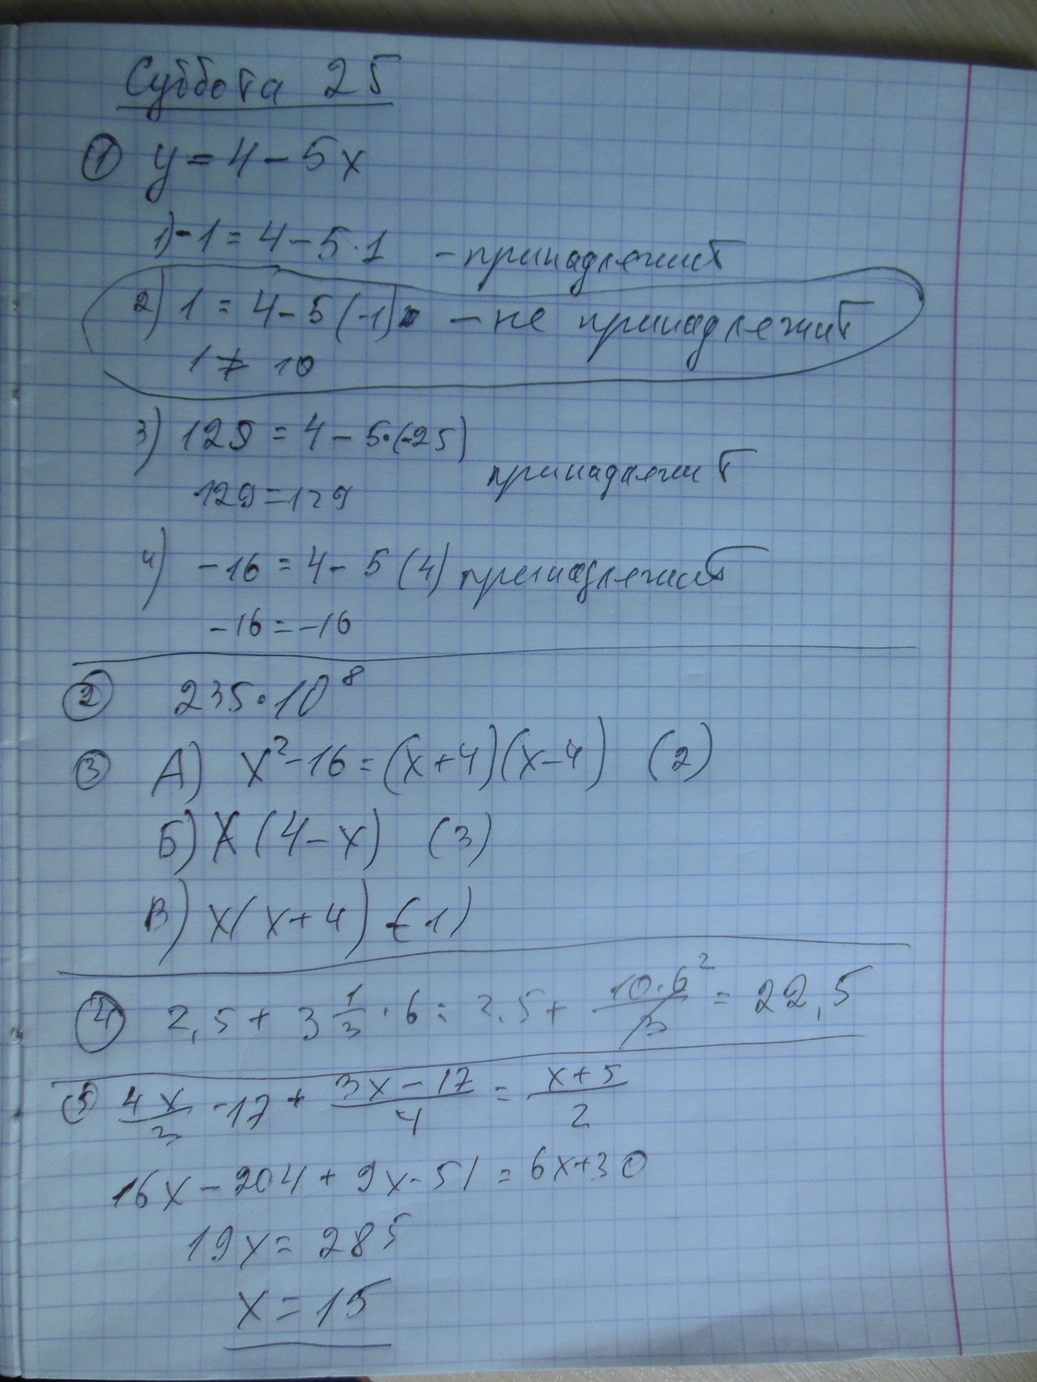 Суббота 25
① y = 4 - 5x
1) -1 = 4 - 5·1 - принадлежит
2) 1 = 4 - 5(-1) - не принадлежит
1 ≠ 10
3) 129 = 4 - 5·(-25)
принадлежит
129 = 129
4) -16 = 4 - 5(4) принадлежит
-16 = -16
② 235·10⁸
③ А) x² - 16 = (x+4)(x-4) (2)
Б) x(4-x) (3)
В) x(x+4) (1)
④ 2,5 + 3 1/3 · 6 = 2,5 + 10·6²/3 = 22,5
⑤ 4x/3 - 17 + 3x-17/4 = x+5/2
16x - 204 + 9x - 51 = 6x + 30
19x = 285
x = 15